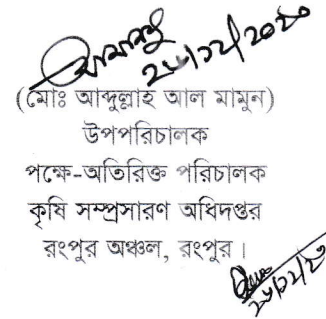 ২৮/১২/২০২০
(মোঃ আব্দুল্লাহ আল মামুন)
উপপরিচালক
পক্ষে-অতিরিক্ত পরিচালক
কৃষি সম্প্রসারণ অধিদপ্তর
রংপুর অঞ্চল, রংপুর।